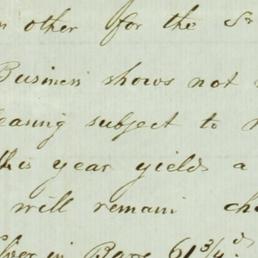 other for the Sr
Business shows not
subject to
this year yields a
will remain
in Bars 61 3/4 d